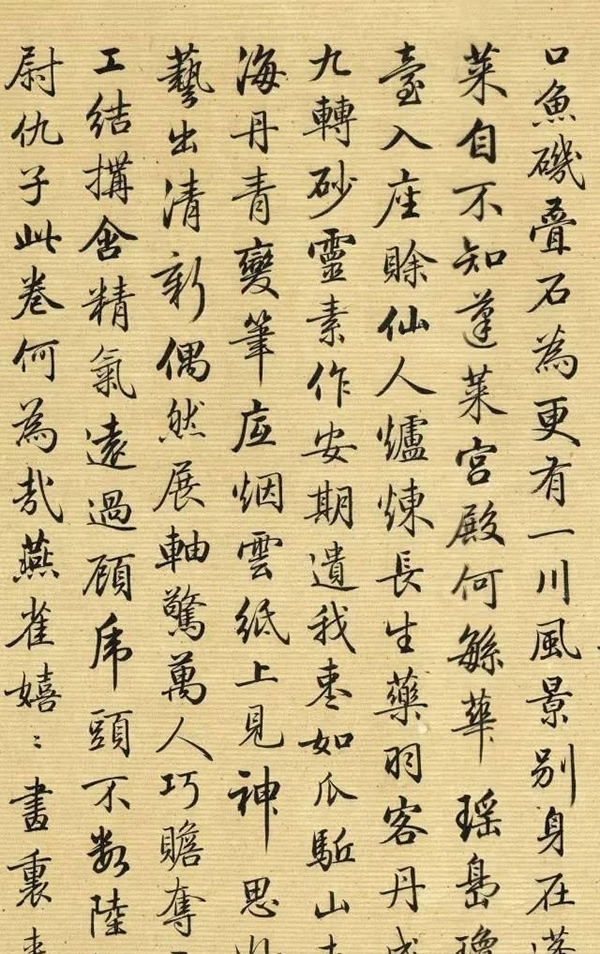 口魚磯疊石為更有一川風景別身在蓬
萊自不知蓬萊宮殿何繇華瑤島瓊
臺入座賒仙人爐煉長生藥羽客丹成
九轉砂靈素作安期遺我棗如瓜駈山
海丹青變筆底烟雲紙上見神思
藝出清新偶然展軸驚萬人巧贍奪
工結搆含精氣遠過顧虎頭不數陸
尉仇子此卷何為哉燕雀嬉〻畫裏